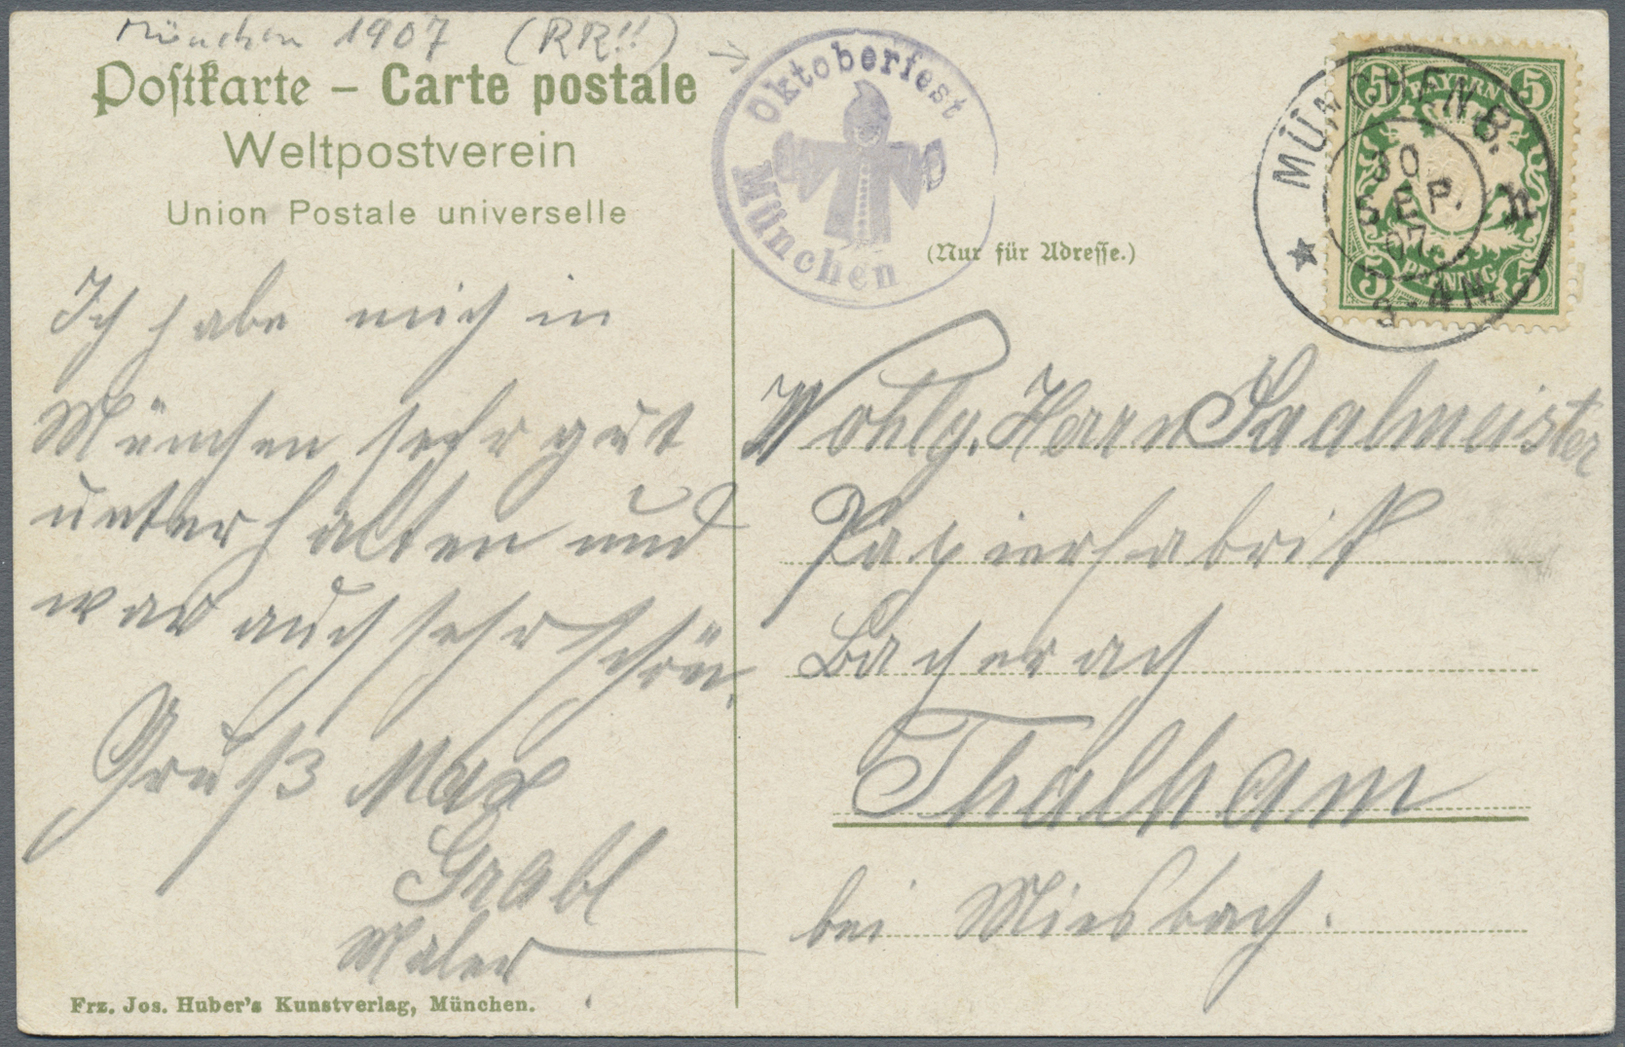 München 1907 (RR!!)
Postkarte – Carte postale
Weltpostverein
Union Postale universelle
Oktoberfest
München
BAYERN
5 5
5 5
PFENNIG
MÜNCHEN B.
30
SEP.
07
3-4 N.
(Nur für Adresse.)
Ich habe mich in
München sehr gut
unterhalten und
war auch sehr schön.
Gruß Max
Grabl
Maler
Wohlg. Herrn Saalmeister
Papierfabrik
Thalham
bei Miesbach.
Frz. Jos. Huber's Kunstverlag, München.